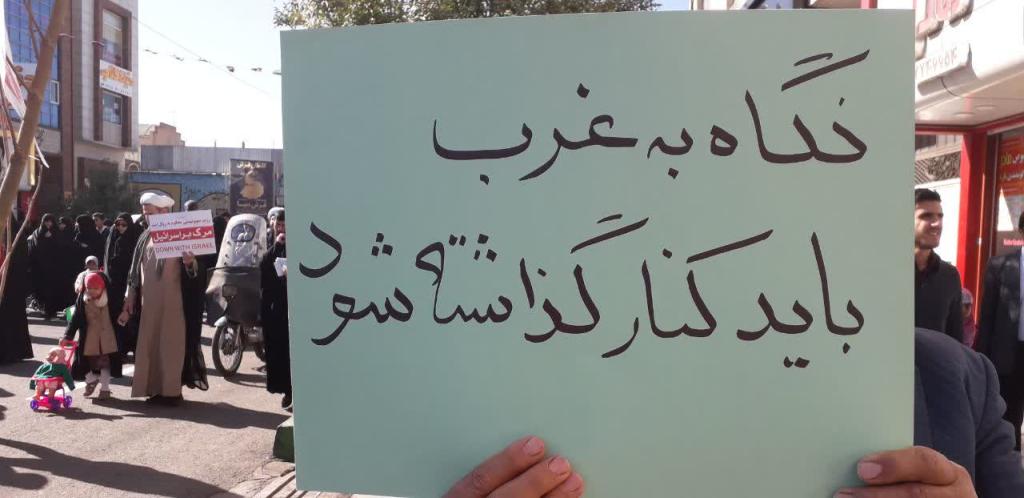 نگاه به غرب
باید کنار گذاشته شود
مرگ بر اسرائیل
DOWN WITH ISRAEL